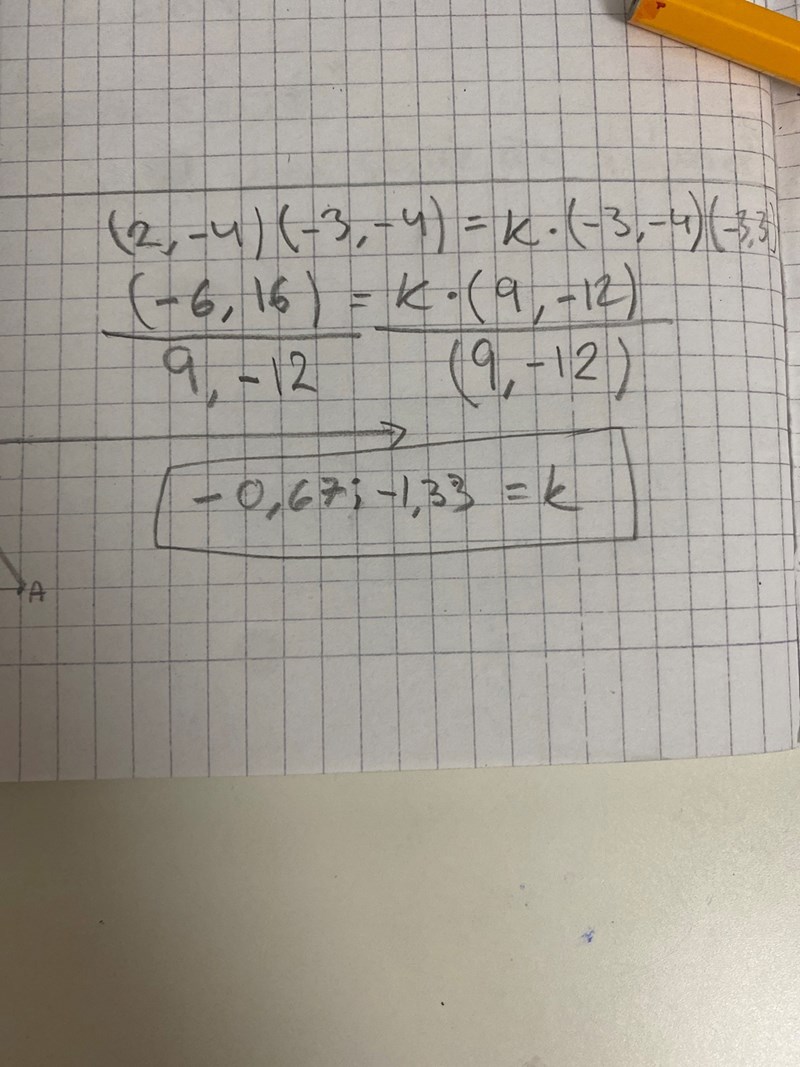 (2,-4)(-3,-4) = k·(-3,-4)(-3,3)
(-6,16) = k·(9,-12)
9,-12 (9,-12)
-0,67; -1,33 = k
A